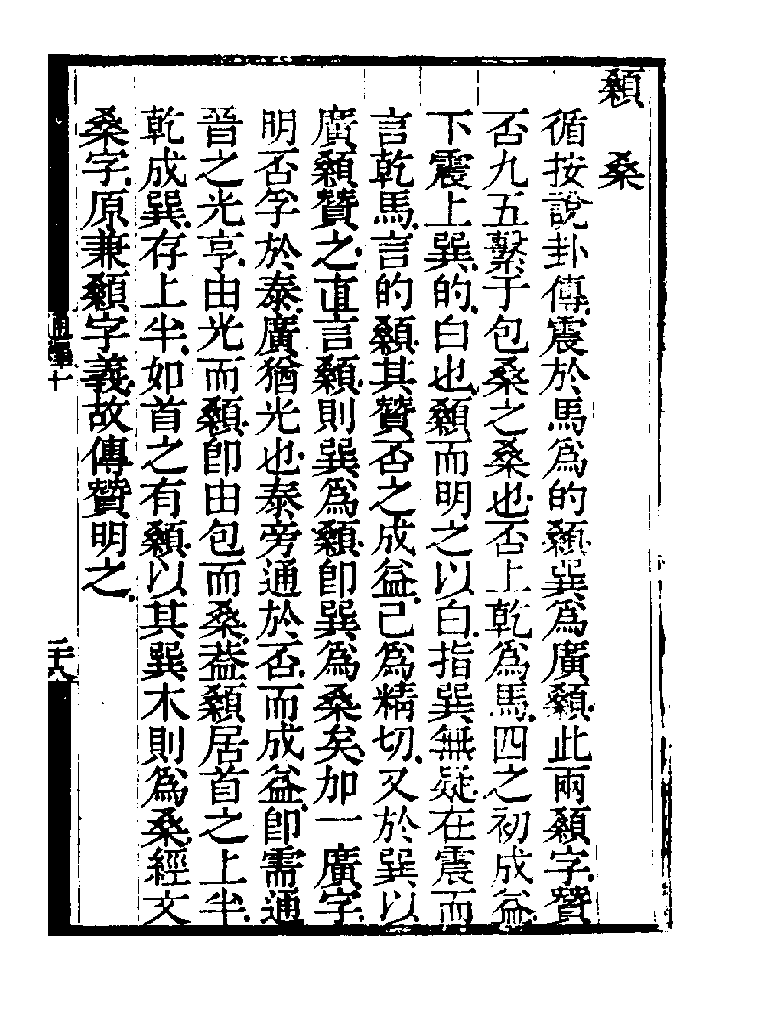 顙 桑
循按說卦傳震於馬爲的顙巽爲廣顙此兩顙字贊
否九五繫于包桑之桑也否上乾爲馬四之初成益
下震上巽的白也顙而明之以白指巽無疑在震而
言乾馬言的顙其贊否之成益已爲精切又於巽以
廣顙贊之直言顙則巽爲顙卽巽爲桑矣加一廣字
明否孚於泰廣猶光也泰旁通於否而成益卽需通
晉之光亨由光而顙卽由包而桑葢顙居首之上半
乾成巽存上半如首之有顙以其巽木則爲桑經文
桑字原兼顙字義故傳贊明之
通釋十
二十八